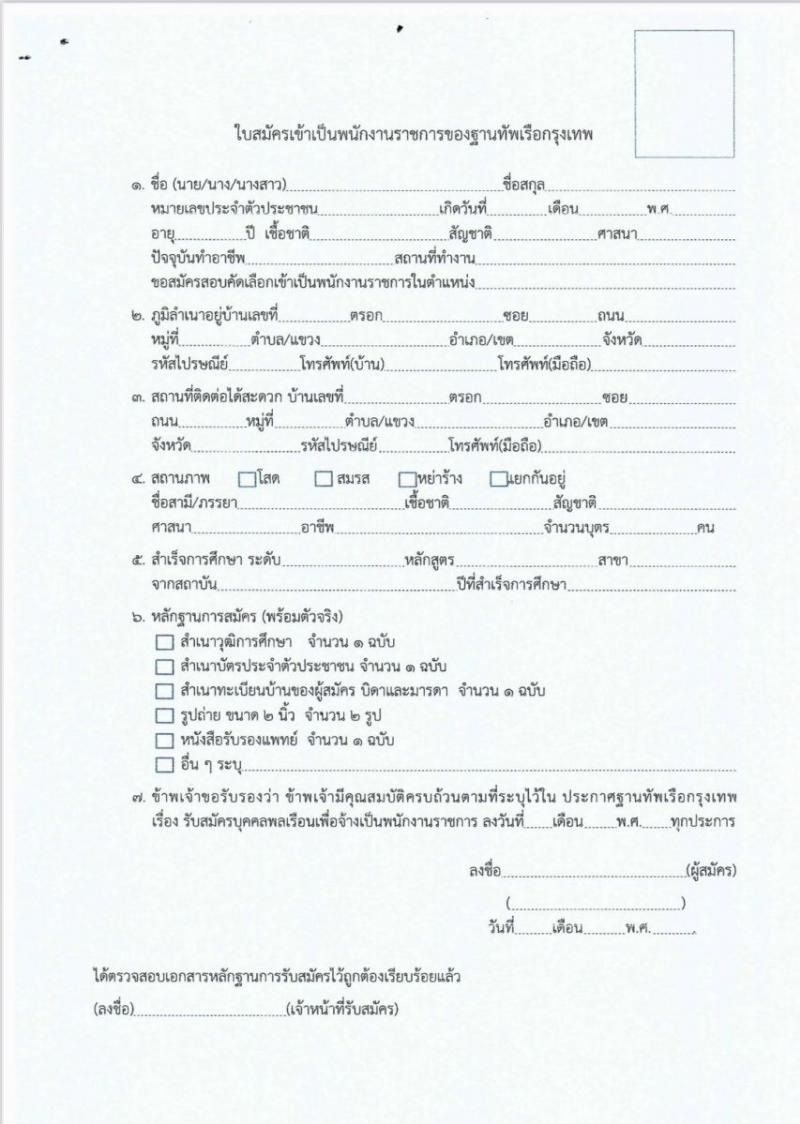 ใบสมัครเข้าเป็นพนักงานราชการของฐานทัพเรือกรุงเทพ
๑. ชื่อ (นาย/นาง/นางสาว)..........ชื่อสกุล..........
หมายเลขประจำตัวประชาชน..........เกิดวันที่..........เดือน..........พ.ศ..........
อายุ..........ปี เชื้อชาติ..........สัญชาติ..........ศาสนา..........
ปัจจุบันทำอาชีพ..........สถานที่ทำงาน..........
ขอสมัครสอบคัดเลือกเข้าเป็นพนักงานราชการในตำแหน่ง..........
๒. ภูมิลำเนาอยู่บ้านเลขที่..........ตรอก..........ซอย..........ถนน..........
หมู่ที่..........ตำบล/แขวง..........อำเภอ/เขต..........จังหวัด..........
รหัสไปรษณีย์..........โทรศัพท์(บ้าน)..........โทรศัพท์(มือถือ)..........
๓. สถานที่ติดต่อได้สะดวก บ้านเลขที่..........ตรอก..........ซอย..........
ถนน..........หมู่ที่..........ตำบล/แขวง..........อำเภอ/เขต..........
จังหวัด..........รหัสไปรษณีย์..........โทรศัพท์(มือถือ)..........
๔. สถานภาพ ☐โสด ☐ สมรส ☐หย่าร้าง ☐แยกกันอยู่
ชื่อสามี/ภรรยา..........เชื้อชาติ..........สัญชาติ..........
ศาสนา..........อาชีพ..........จำนวนบุตร..........คน
๕. สำเร็จการศึกษา ระดับ..........หลักสูตร..........สาขา..........
จากสถาบัน..........ปีที่สำเร็จการศึกษา..........
๖. หลักฐานการสมัคร (พร้อมตัวจริง)
☐ สำเนาวุฒิการศึกษา จำนวน ๑ ฉบับ
☐ สำเนาบัตรประจำตัวประชาชน จำนวน ๑ ฉบับ
☐ สำเนาทะเบียนบ้านของผู้สมัคร บิดาและมารดา จำนวน ๑ ฉบับ
☐ รูปถ่าย ขนาด ๒ นิ้ว จำนวน ๒ รูป
☐ หนังสือรับรองแพทย์ จำนวน ๑ ฉบับ
☐ อื่น ๆ ระบุ..........
๗. ข้าพเจ้าขอรับรองว่า ข้าพเจ้ามีคุณสมบัติครบถ้วนตามที่ระบุไว้ใน ประกาศฐานทัพเรือกรุงเทพ
เรื่อง รับสมัครบุคคลพลเรือนเพื่อจ้างเป็นพนักงานราชการ ลงวันที่......เดือน......พ.ศ......ทุกประการ
ลงชื่อ..........(ผู้สมัคร)
(..........)
วันที่......เดือน......พ.ศ.......
ได้ตรวจสอบเอกสารหลักฐานการรับสมัครไว้ถูกต้องเรียบร้อยแล้ว
(ลงชื่อ)..........(เจ้าหน้าที่รับสมัคร)